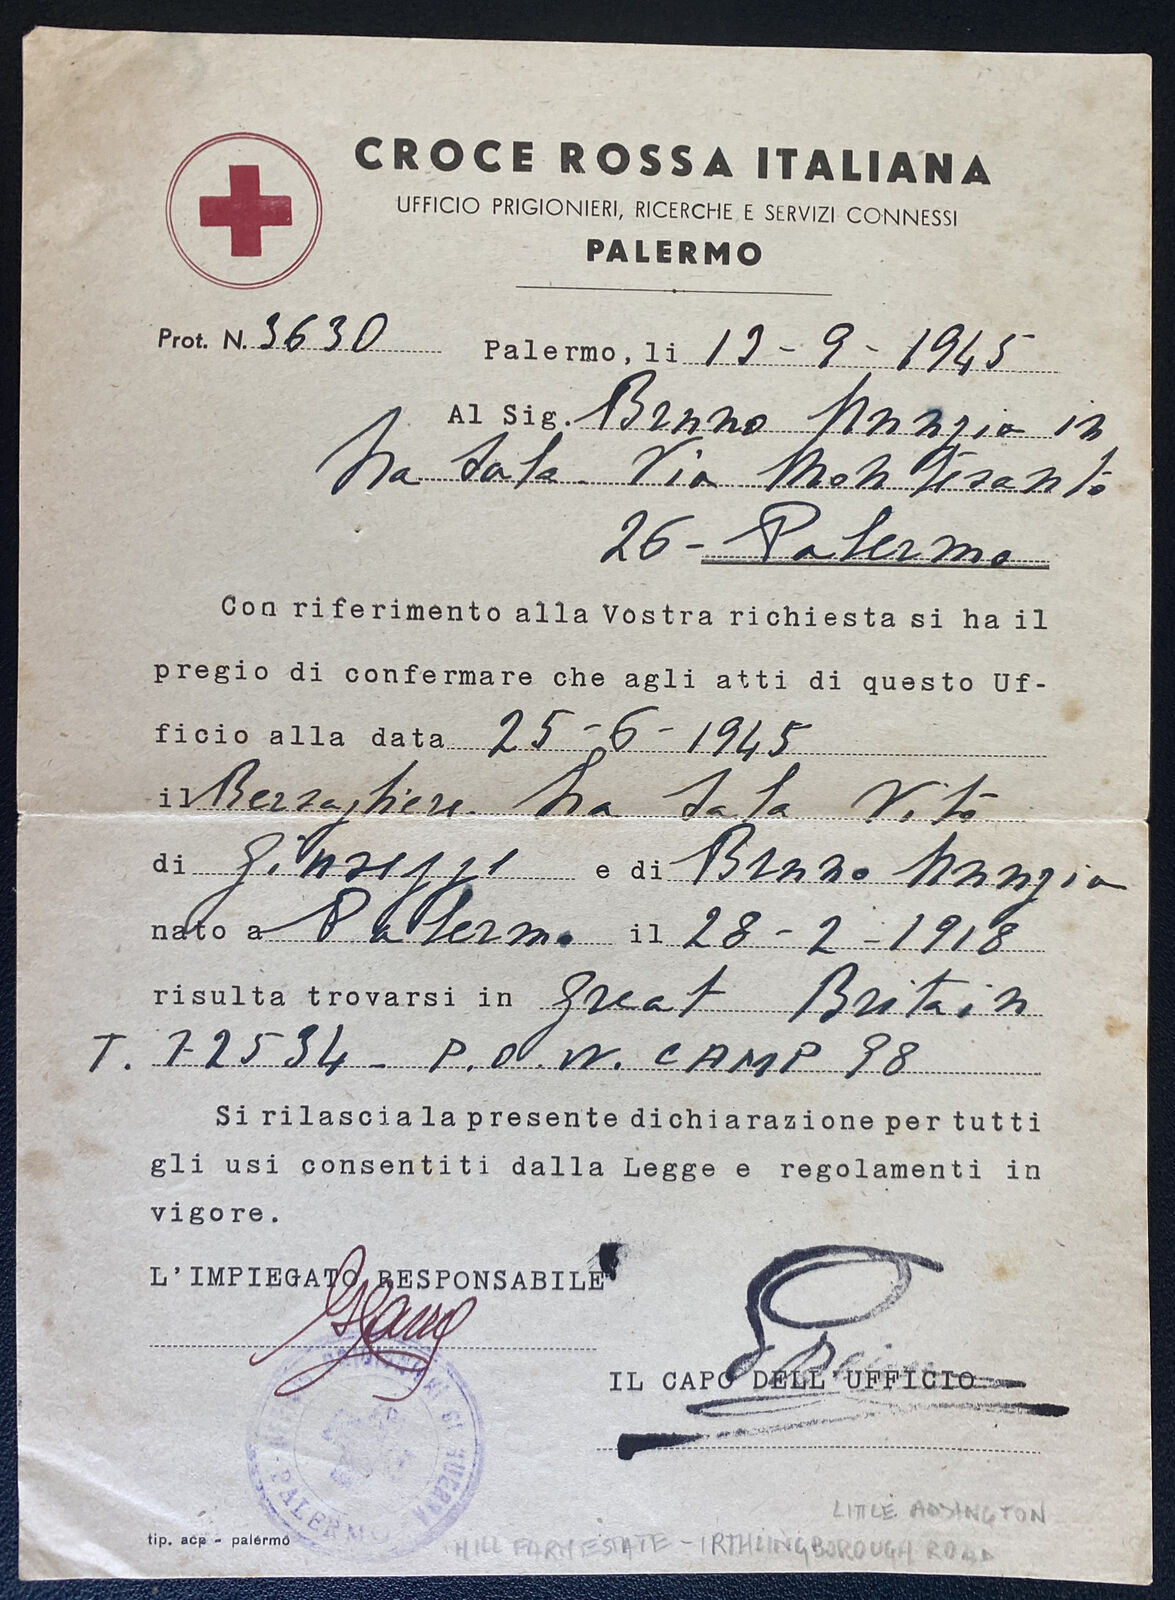 CROCE ROSSA ITALIANA
UFFICIO PRIGIONIERI, RICERCHE E SERVIZI CONNESSI
PALERMO
Prot. N. 3630
Palermo, li 13-9-1945
Al Sig. Bruno Nunzia in
La Sala Via Montesanto
26 - Palermo
Con riferimento alla Vostra richiesta si ha il
pregio di confermare che agli atti di questo Uf-
ficio alla data 25-6-1945
il Bersagliere La Sala Vito
di Giuseppe e di Bruno Nunzia
nato a Palermo il 28-2-1918
risulta trovarsi in Great Britain
T. 72534 - P.O.W. CAMP 98
Si rilascia la presente dichiarazione per tutti
gli usi consentiti dalla Legge e regolamenti in
vigore.
L'IMPIEGATO RESPONSABILE
IL CAPO DELL'UFFICIO
PALERMO
GUERRA
LITTLE ADDINGTON
tip. acp - palermo
HILL FARM ESTATE - IRTHLINGBOROUGH ROAD